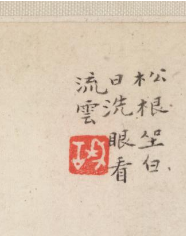 松根坐白
日洗眼看
流雲